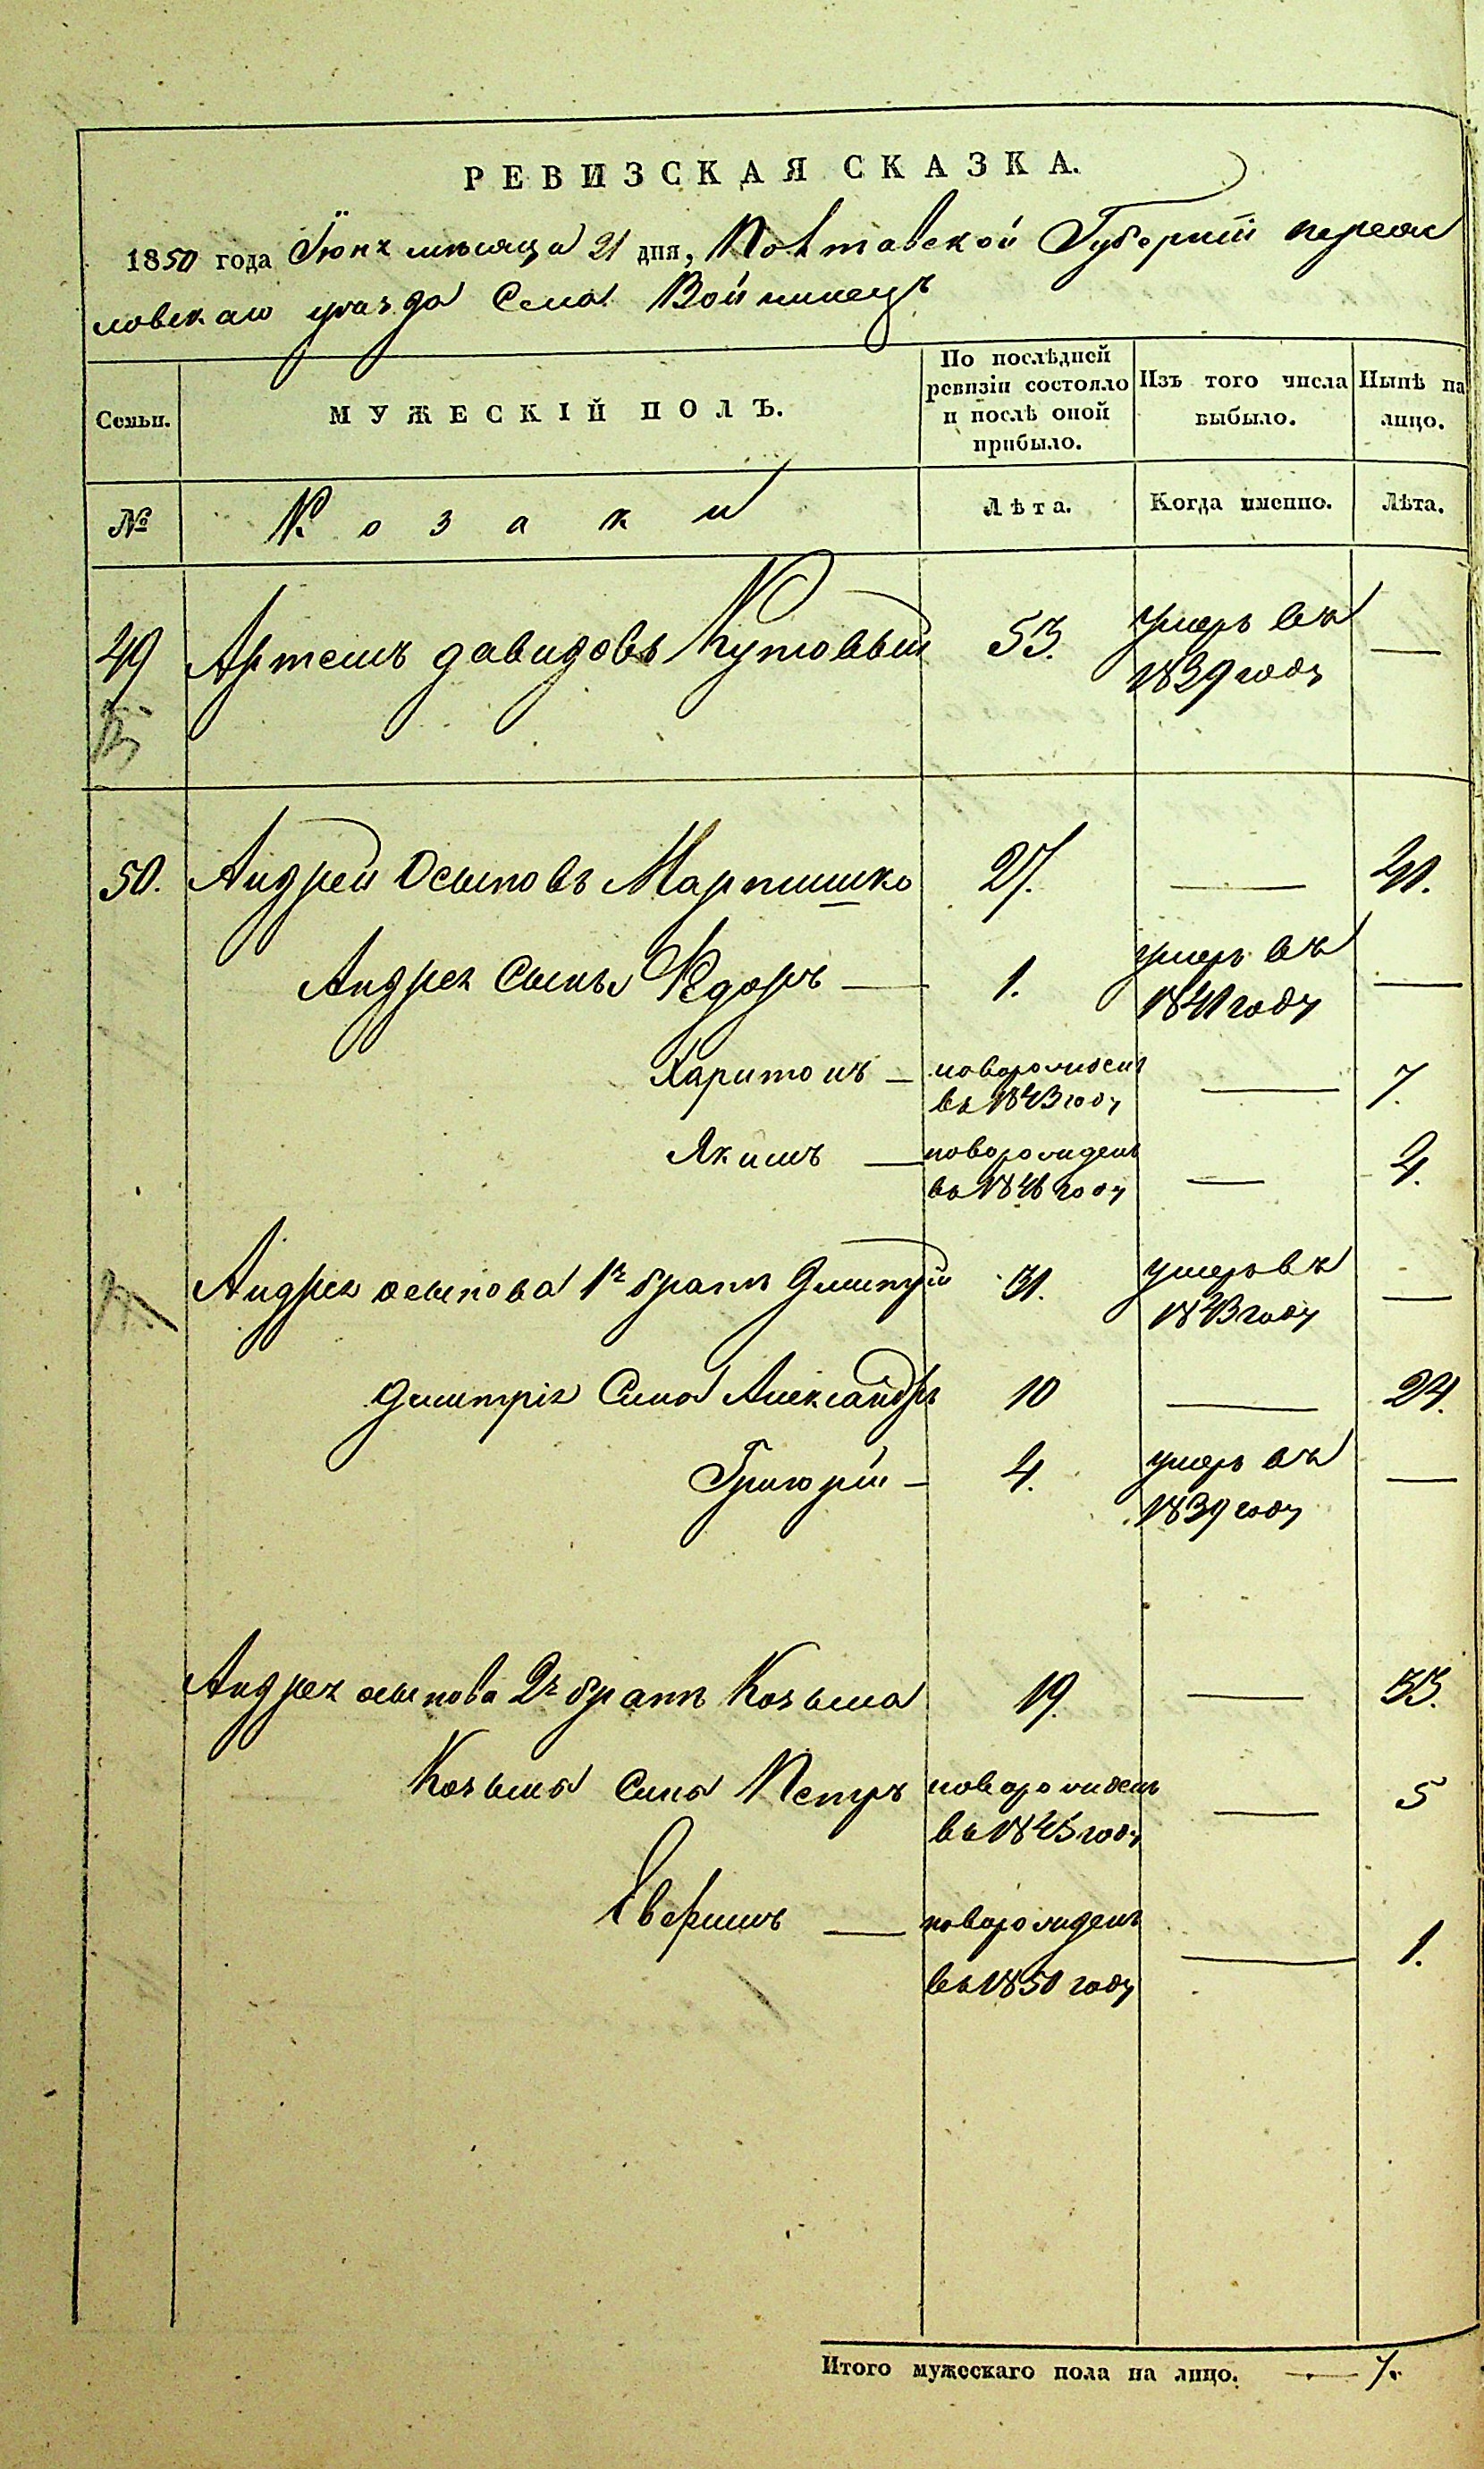 РЕВИЗСКАЯ СКАЗКА.
1850 года Іюня мѣсяца 21 дня, Полтавской Губерніи переяс
ловскаго уѣзда Села Войнинецъ
Семьи.
МУЖЕСКІЙ ПОЛЪ.
По послѣдней
ревизіи состояло
и послѣ оной
прибыло.
Изъ того числа
выбыло.
Нынѣ на
лицо.
№
Козаки
Лѣта.
Когда именно.
Лѣта.
49 Артемъ давидовъ Кутовый 53. умеръ въ —
1839 году
50. Андрей Осиповъ Мартишко 27. — 41.
Андрея Сынъ Федоръ — 1. умеръ въ —
1841 году
Харитонъ — новорожденъ — 7.
въ 1843 году
Якимъ — новорожденъ — 4.
въ 1846 году
Андрея осипова 1й братъ Дмитрій 31. умеръ въ —
1843 году
Дмитрія Сына Александръ 10 — 24.
Григорій — 4. умеръ въ —
1839 году
Андрея осипова 2й братъ Козьма 19. — 33.
Козьма Сына Петръ новорожденъ — 5
въ 1845 году
— новорожденъ — 1.
въ 1850 году
Итого мужескаго пола на лицо. — 7.